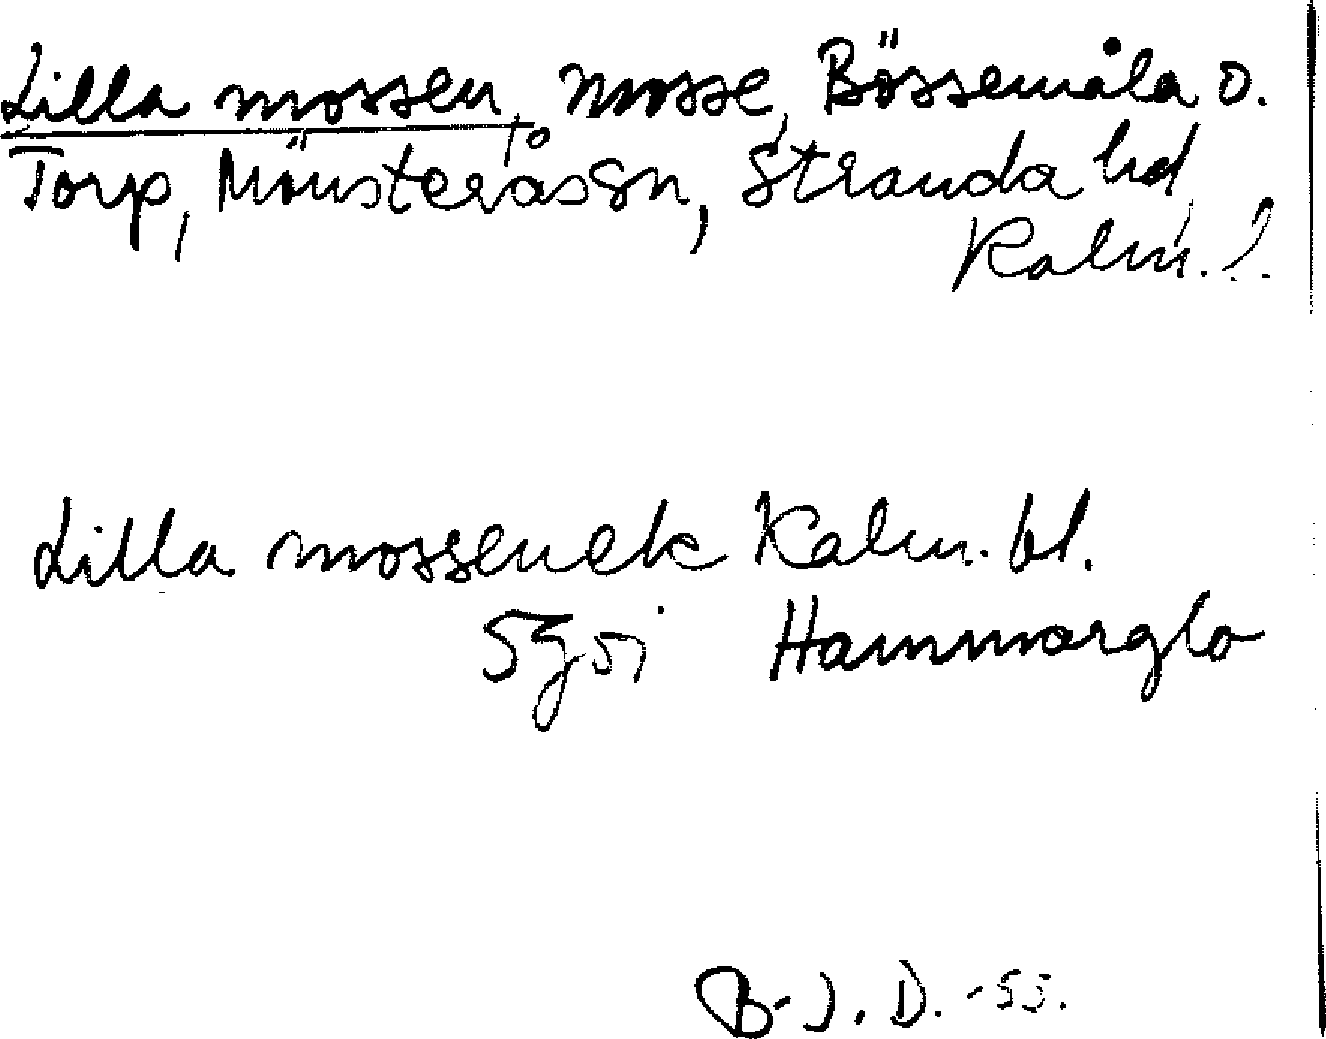 Lilla mossen, mosse, Bössemåla o.
Torp, Mönsterås sn, Stranda hd,
Kalm. l.
Lilla mossen ek Kalm. bl.
5g5i Hammarglo
B-J. D. -55.